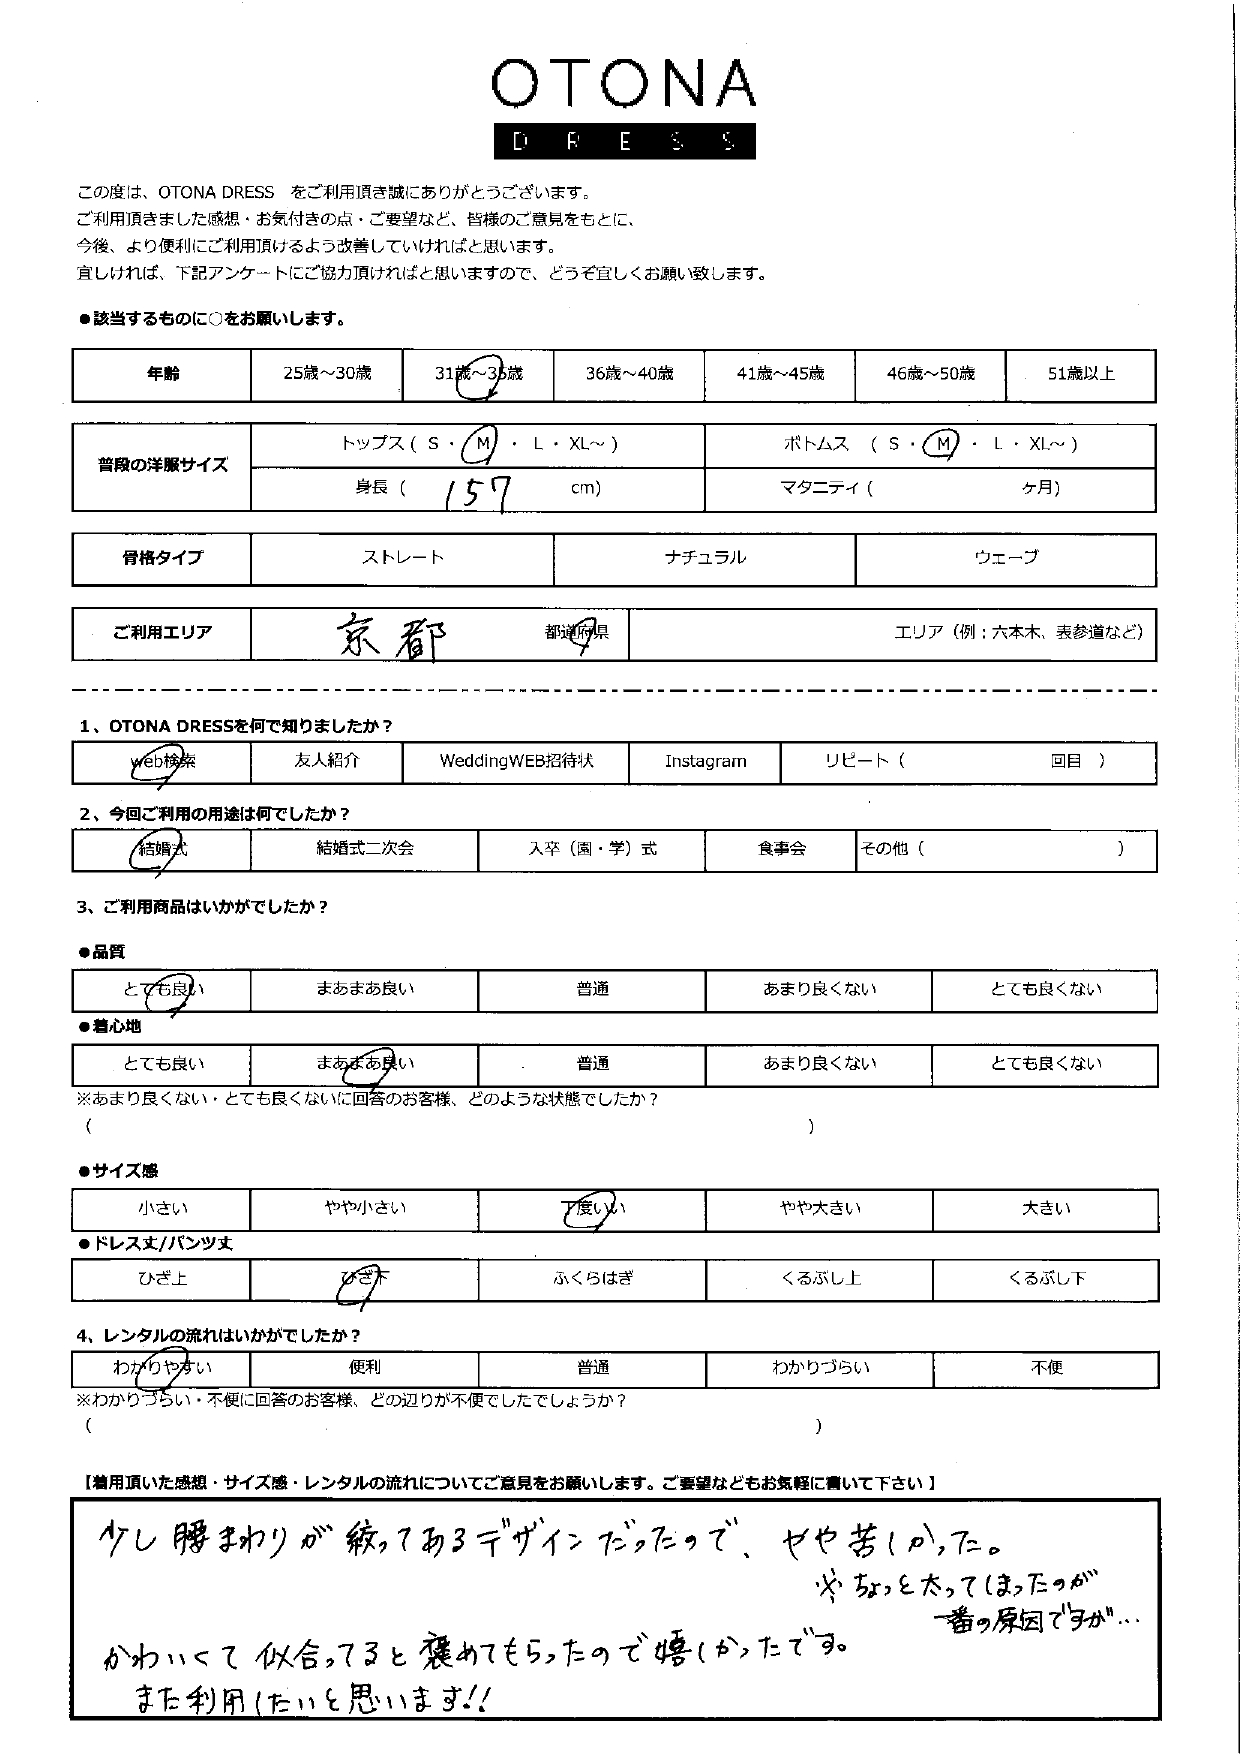 OTONA
DRESS
この度は、OTONA DRESS　をご利用頂き誠にありがとうございます。
ご利用頂きました感想・お気付きの点・ご要望など、皆様のご意見をもとに、
今後、より便利にご利用頂けるよう改善していければと思います。
宜しければ、下記アンケートにご協力頂ければと思いますので、どうぞ宜しくお願い致します。
●該当するものに○をお願いします。
年齢 25歳～30歳 31歳～35歳 36歳～40歳 41歳～45歳 46歳～50歳 51歳以上
普段の洋服サイズ トップス ( S ・ M ・ L ・ XL～ ) ボトムス ( S ・ M ・ L ・ XL～ )
身長 ( 157 cm) マタニティ ( ヶ月)
骨格タイプ ストレート ナチュラル ウェーブ
ご利用エリア 京都 都道府県 エリア（例：六本木、表参道など）
1、OTONA DRESSを何で知りましたか？
web検索 友人紹介 WeddingWEB招待状 Instagram リピート（ 回目 ）
2、今回ご利用の用途は何でしたか？
結婚式 結婚式二次会 入卒（園・学）式 食事会 その他（ ）
3、ご利用商品はいかがでしたか？
●品質
とても良い まあまあ良い 普通 あまり良くない とても良くない
●着心地
とても良い まあまあ良い 普通 あまり良くない とても良くない
※あまり良くない・とても良くないに回答のお客様、どのような状態でしたか？
（ ）
●サイズ感
小さい やや小さい 丁度いい やや大きい 大きい
●ドレス丈/パンツ丈
ひざ上 ひざ下 ふくらはぎ くるぶし上 くるぶし下
4、レンタルの流れはいかがでしたか？
わかりやすい 便利 普通 わかりづらい 不便
※わかりづらい・不便に回答のお客様、どの辺りが不便でしたでしょうか？
（ ）
【着用頂いた感想・サイズ感・レンタルの流れについてご意見をお願いします。ご要望などもお気軽に書いて下さい 】
少し腰まわりが絞ってあるデザインだったので、やや苦しかった。
※ちょっと太ってしまったのが
一番の原因ですが…
かわいくて似合ってると褒めてもらったので嬉しかったです。
また利用したいと思います!!